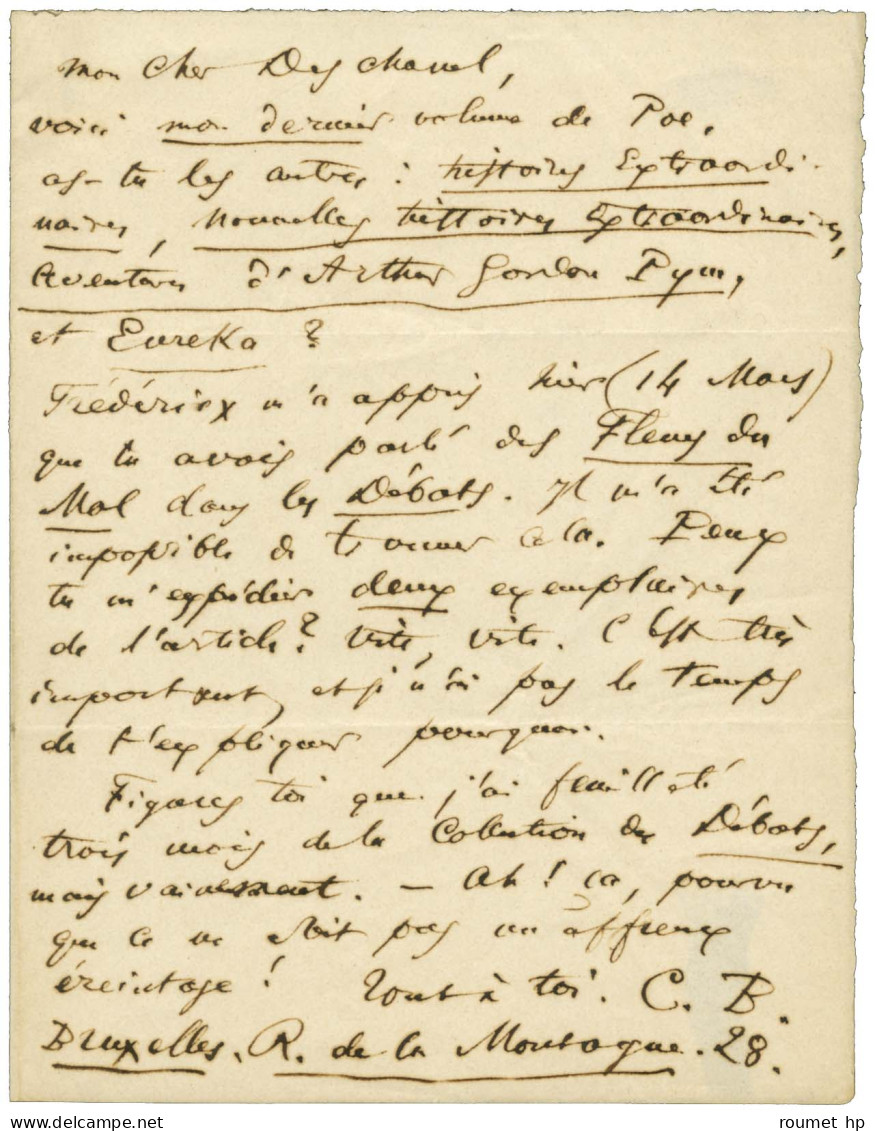 mon cher Deschanel,
voici mon dernier volume de Poe.
as-tu les autres : histoires Extraordi-
naires, Nouvelles histoires Extraordinaires,
Aventures d'Arthur Gordon Pym,
et Eureka ?
Frédérix m'a appris hier (14 Mars)
que tu avais parlé des Fleurs du
Mal dans les Débats. Il m'a été
impossible de trouver cela. Peux
tu m'expédier deux exemplaires
de l'article ? Vite, vite. C'est très
important, et je n'ai pas le temps
de t'expliquer pourquoi.
Figures toi que j'ai feuilleté
trois mois de la Collection des Débats,
mais vainement. – Ah ! ça, pourvu
que ce ne soit pas un affreux
éreintage ! Tout à toi. C. B.
Bruxelles. R. de la Montagne. 28.
roumet hp